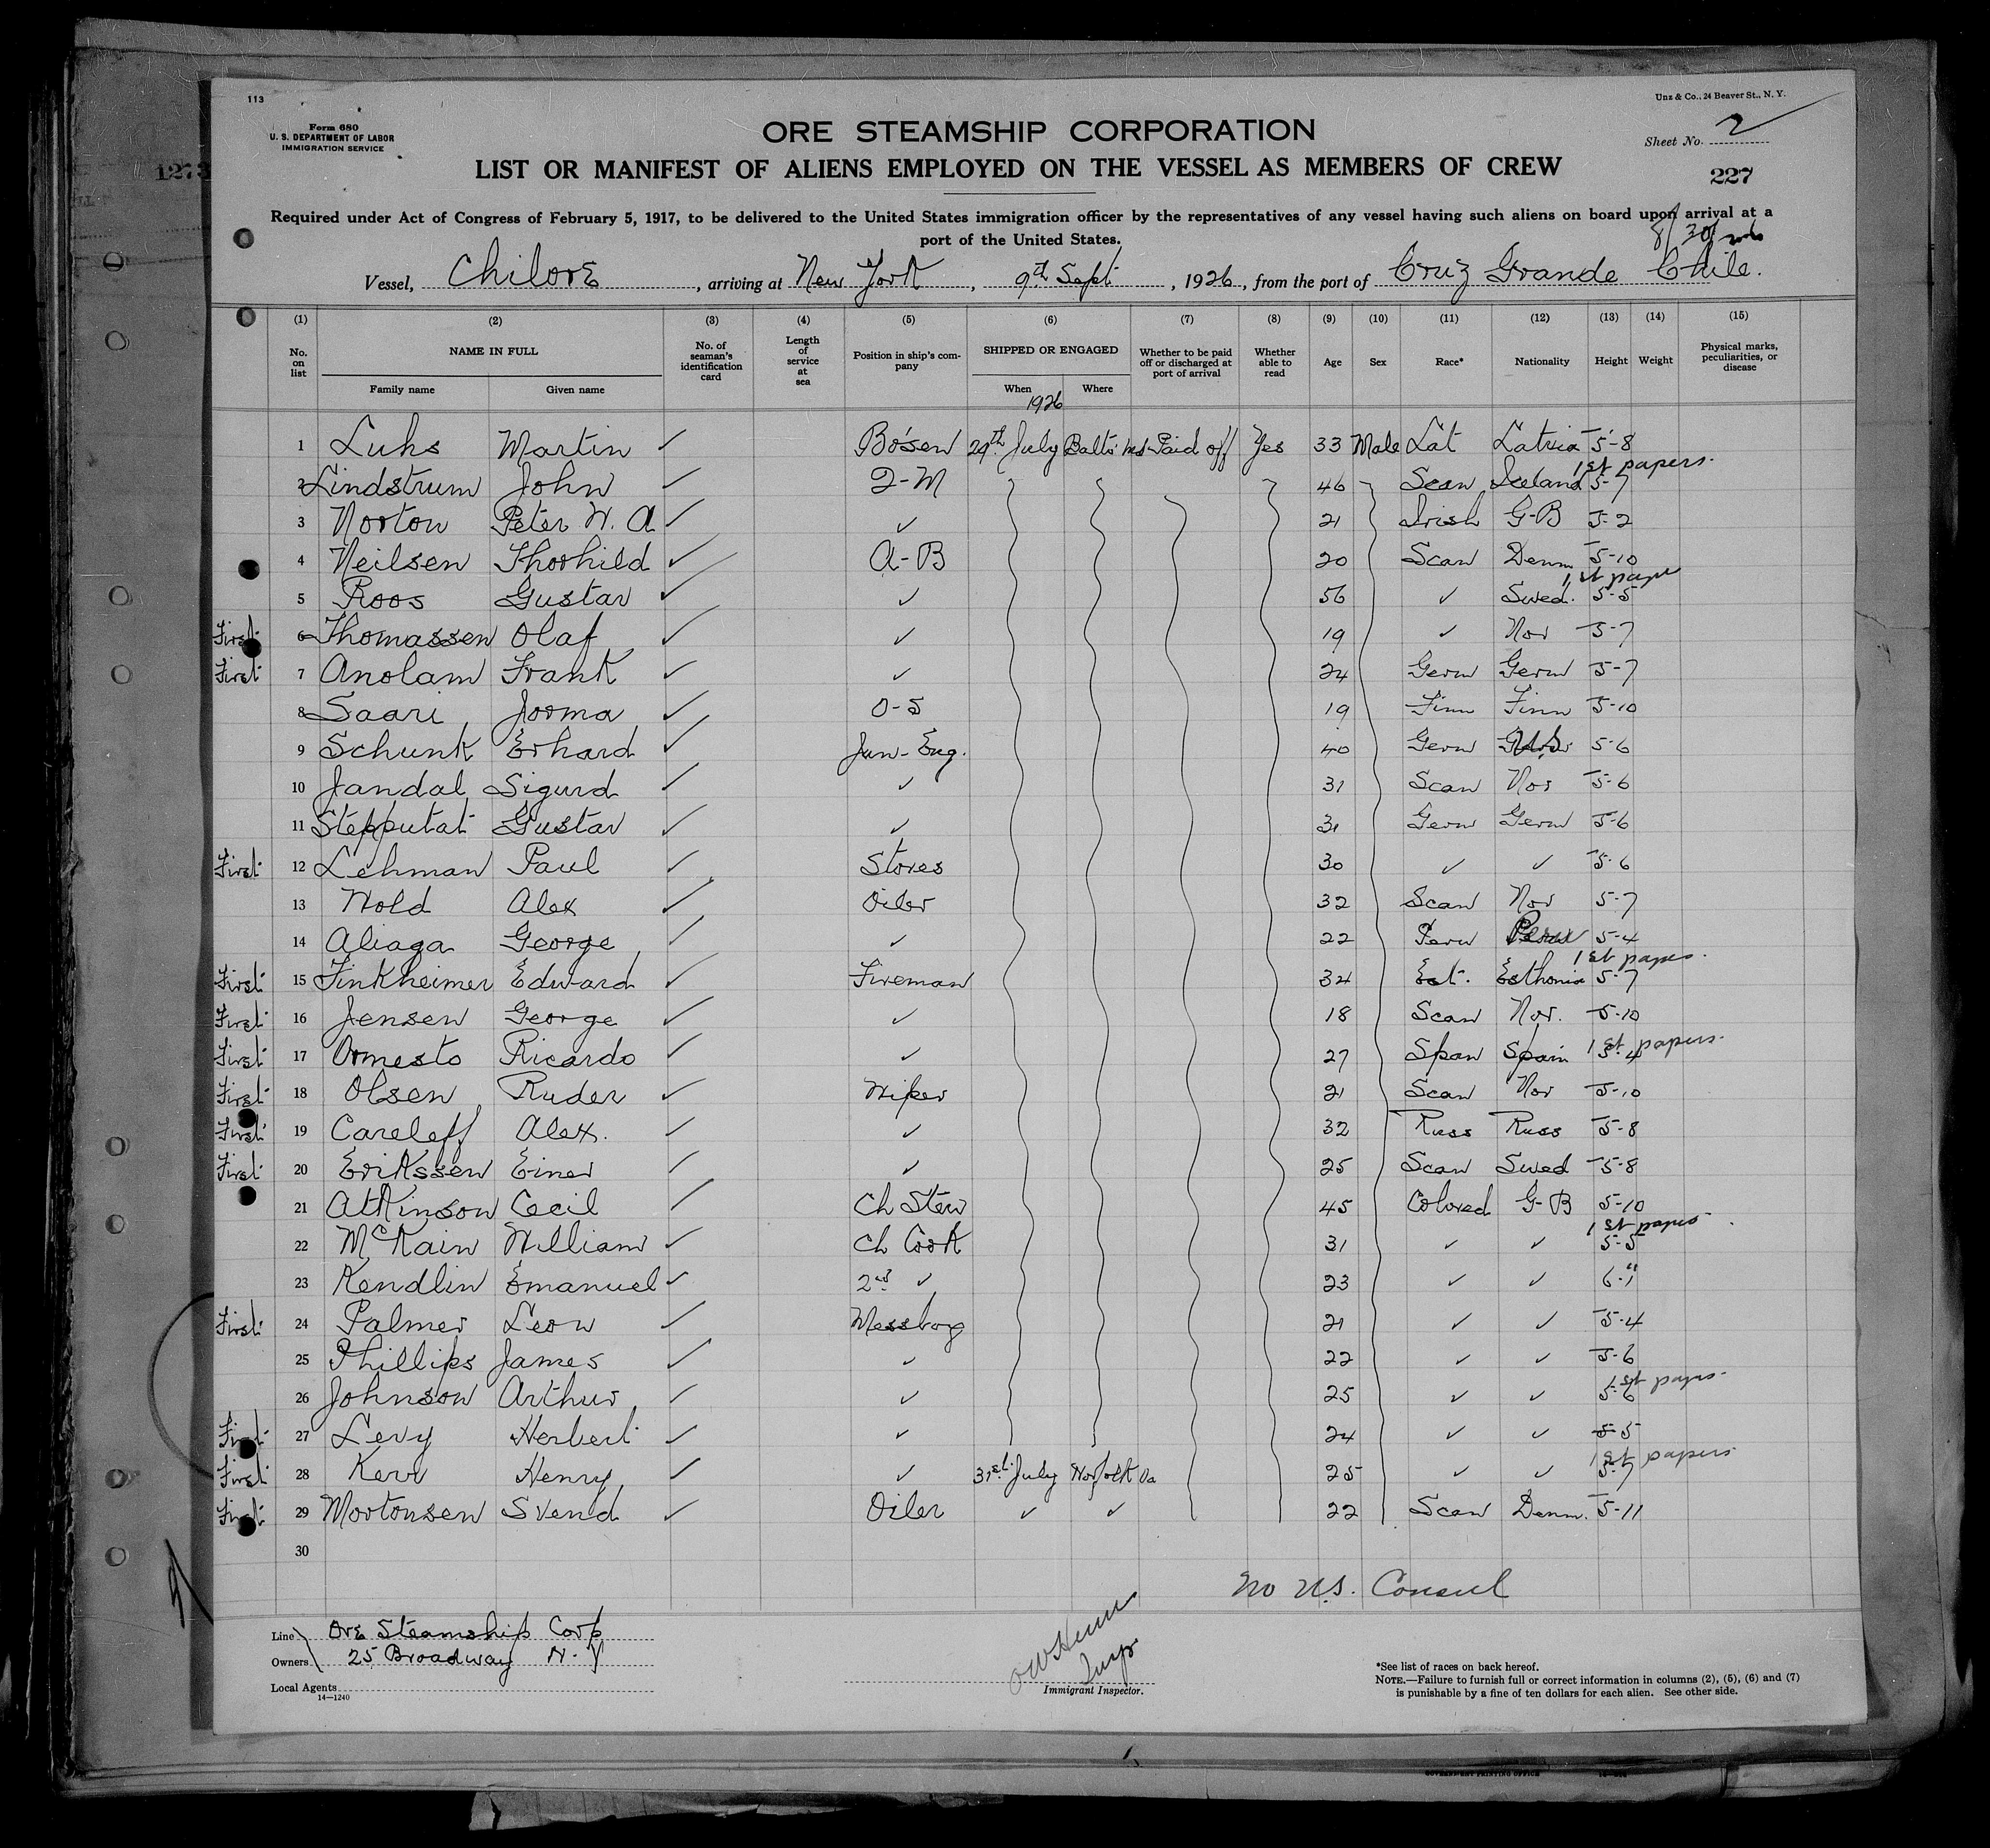 113
Unz & Co., 24 Beaver St., N. Y.
Form 680
U. S. DEPARTMENT OF LABOR
IMMIGRATION SERVICE
ORE STEAMSHIP CORPORATION
Sheet No. 2
LIST OR MANIFEST OF ALIENS EMPLOYED ON THE VESSEL AS MEMBERS OF CREW
1273
227
Required under Act of Congress of February 5, 1917, to be delivered to the United States immigration officer by the representatives of any vessel having such aliens on board upon arrival at a
port of the United States.
8/30/26
Vessel, Chilore, arriving at New York, 9th Sept, 1926, from the port of Cruz Grande Chile.
(1) (2) (3) (4) (5) (6) (7) (8) (9) (10) (11) (12) (13) (14) (15)
No. on list NAME IN FULL Family name Given name No. of seaman's identification card Length of service at sea Position in ship's company SHIPPED OR ENGAGED When Where Whether to be paid off or discharged at port of arrival Whether able to read Age Sex Race* Nationality Height Weight Physical marks, peculiarities, or disease
1926
1 Luhs Martin ✓ Bo'sen 29th July Balto Md Paid off Yes 33 Male Lat Latvia 5-8
1st papers.
2 Lindstrum John ✓ 2-M 46 Scan Iceland 5-7
3 Norton Peter W. A ✓ ✓ 21 Irish G-B 5-2
4 Neilsen Thorhild ✓ A-B 20 Scan Denm 5-10
1st pape
5 Roos Gustav ✓ ✓ 56 ✓ Swed. 5-5
First 6 Thomassen Olaf ✓ ✓ 19 ✓ Nor 5-7
First 7 Anolam Frank ✓ ✓ 24 Germ Germ 5-7
8 Saari Jorma ✓ O-S 19 Finn Finn 5-10
9 Schunk Erhard ✓ Jun-Eng. 40 Germ 5-6
10 Jandal Sigurd ✓ ✓ 31 Scan Nor 5-6
11 Stepputat Gustav ✓ ✓ 31 Germ Germ 5-6
First 12 Lehman Paul ✓ Stores 30 ✓ ✓ 5-6
13 Wold Alex ✓ Oiler 32 Scan Nor 5-7
14 Aliaga George ✓ ✓ 22 Peru Peru 5-4
1st papes.
First 15 Finkheimer Edward ✓ Fireman 34 Est. Esthonia 5-7
First 16 Jensen George ✓ ✓ 18 Scan Nor. 5-10
First 17 Ormesto Ricardo ✓ ✓ 27 Span Spain 5-4 1st papers.
First 18 Olsen Ruder ✓ Wiper 21 Scan Nor 5-10
First 19 Careleff Alex. ✓ ✓ 32 Russ Russ 5-8
First 20 Erikssen Einer ✓ ✓ 25 Scan Swed 5-8
21 Atkinson Cecil ✓ Ch Stew 45 Colored G-B 5-10
1st papers
22 McKain William ✓ Ch Cook 31 ✓ ✓ 5-5
23 Kendlin Emanuel ✓ 2nd ✓ 23 ✓ ✓ 6-1"
First 24 Palmer Leon ✓ Messboy 21 ✓ ✓ 5-4
25 Phillips James ✓ ✓ 22 ✓ ✓ 5-6
26 Johnson Arthur ✓ ✓ 25 ✓ ✓ 5-6 1st papes.
First 27 Levy Herbert ✓ ✓ 24 ✓ ✓ 5-5
First 28 Kerr Henry ✓ ✓ 31st July Norfolk Va 25 ✓ ✓ 5-7 1st papers
First 29 Mortonsen Svend ✓ Oiler ✓ ✓ 22 Scan Denm. 5-11
30
No U.S. Consul
Line Ore Steamship Corp
Owners 25 Broadway N. Y
Local Agents
14—1240
Insp
Immigrant Inspector.
*See list of races on back hereof.
NOTE.—Failure to furnish full or correct information in columns (2), (5), (6) and (7)
is punishable by a fine of ten dollars for each alien. See other side.
GOVERNMENT PRINTING OFFICE